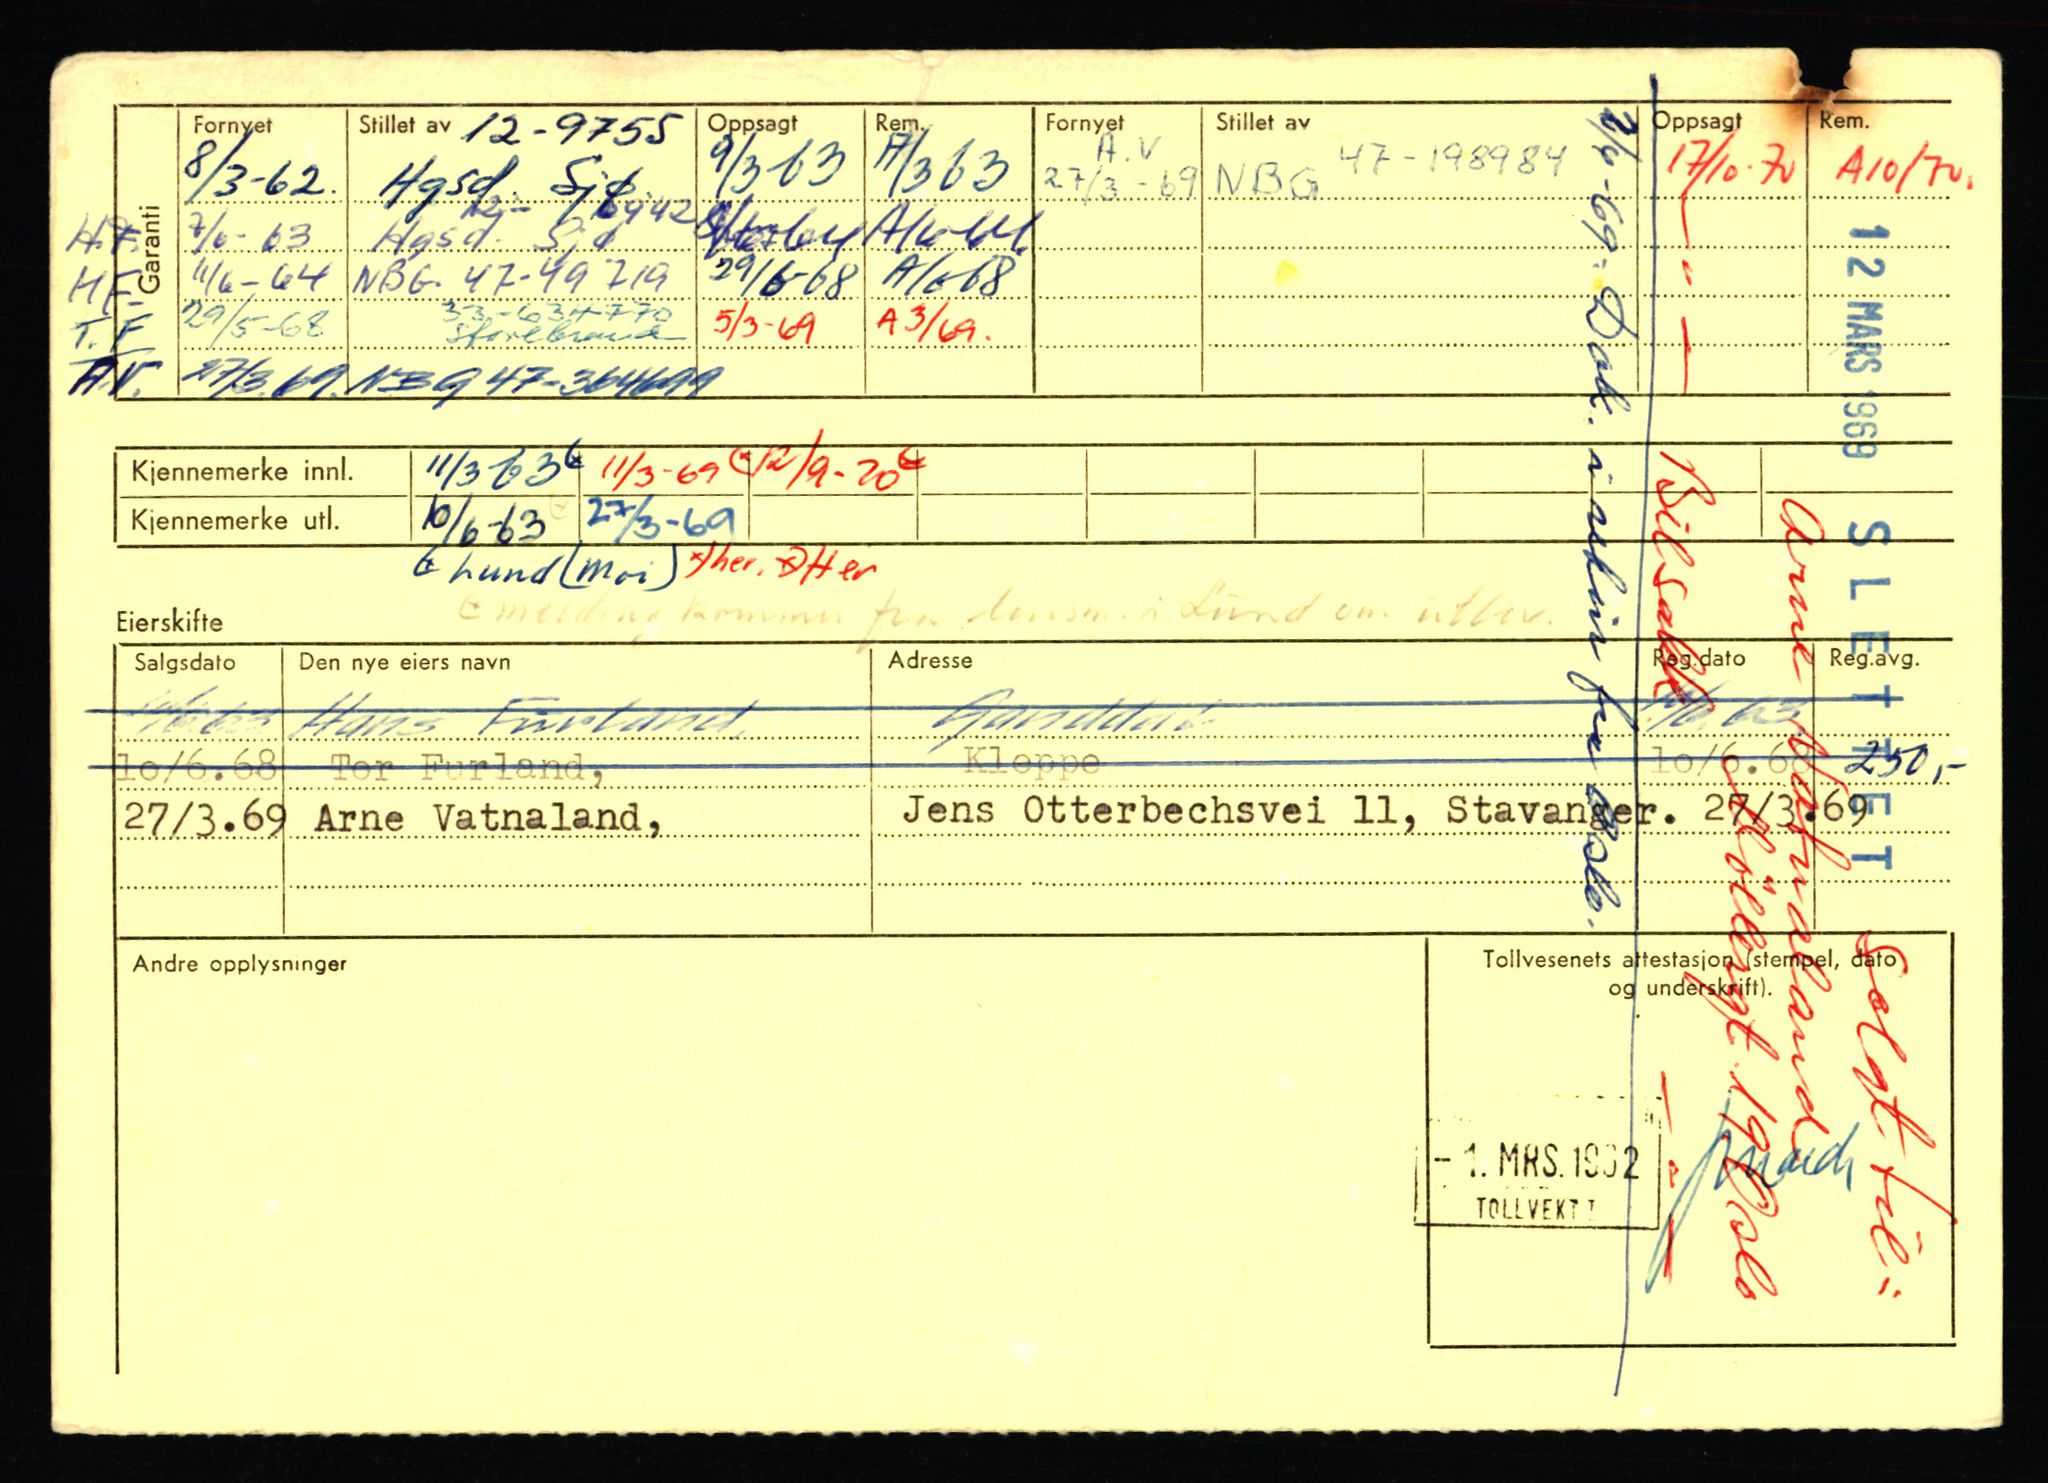 Garanti
Fornyet Stillet av 12-9755 Oppsagt Rem. Fornyet Stillet av Oppsagt Rem.
8/3-62. Hgsd. Sjø. 9/3 63 A/3 63 A.V 27/3-69 NBG 47-198984 17/10-70 A10/70.
H.F. 7/6-63 Hgsd. Sjø A/6-64
H F. 11/6-64 NBG. 47-49719 29/6-68 A/6-68
T. F 29/5-68 33-634770 Storebrand 5/3-69 A 3/69.
A.V. 27/3.69. NBG 47-364699
Kjennemerke innl. 11/3-63 11/3-69 12/9-70
Kjennemerke utl. 10/6-63 27/3-69
Lund (Moi) her. Her
melding kommer fra lensm. i Lund om utlev.
Eierskifte
Salgsdato Den nye eiers navn Adresse Reg.dato Reg.avg.
Hans Furland, Ganddal
10/6.68 Tor Furland, Kleppe 10/6.68 250,-
27/3.69 Arne Vatnaland, Jens Otterbechsvei 11, Stavanger. 27/3.69
Andre opplysninger
Tollvesenets attestasjon (stempel, dato
og underskrift).
- 1. MRS. 1962
TOLLVEKT I
2/6-69. Dok. i fra Oslo.
12 MARS 1969 SLETTET
Solgt til:
Arne Vatnaland
19 Oslo
Bilsakk